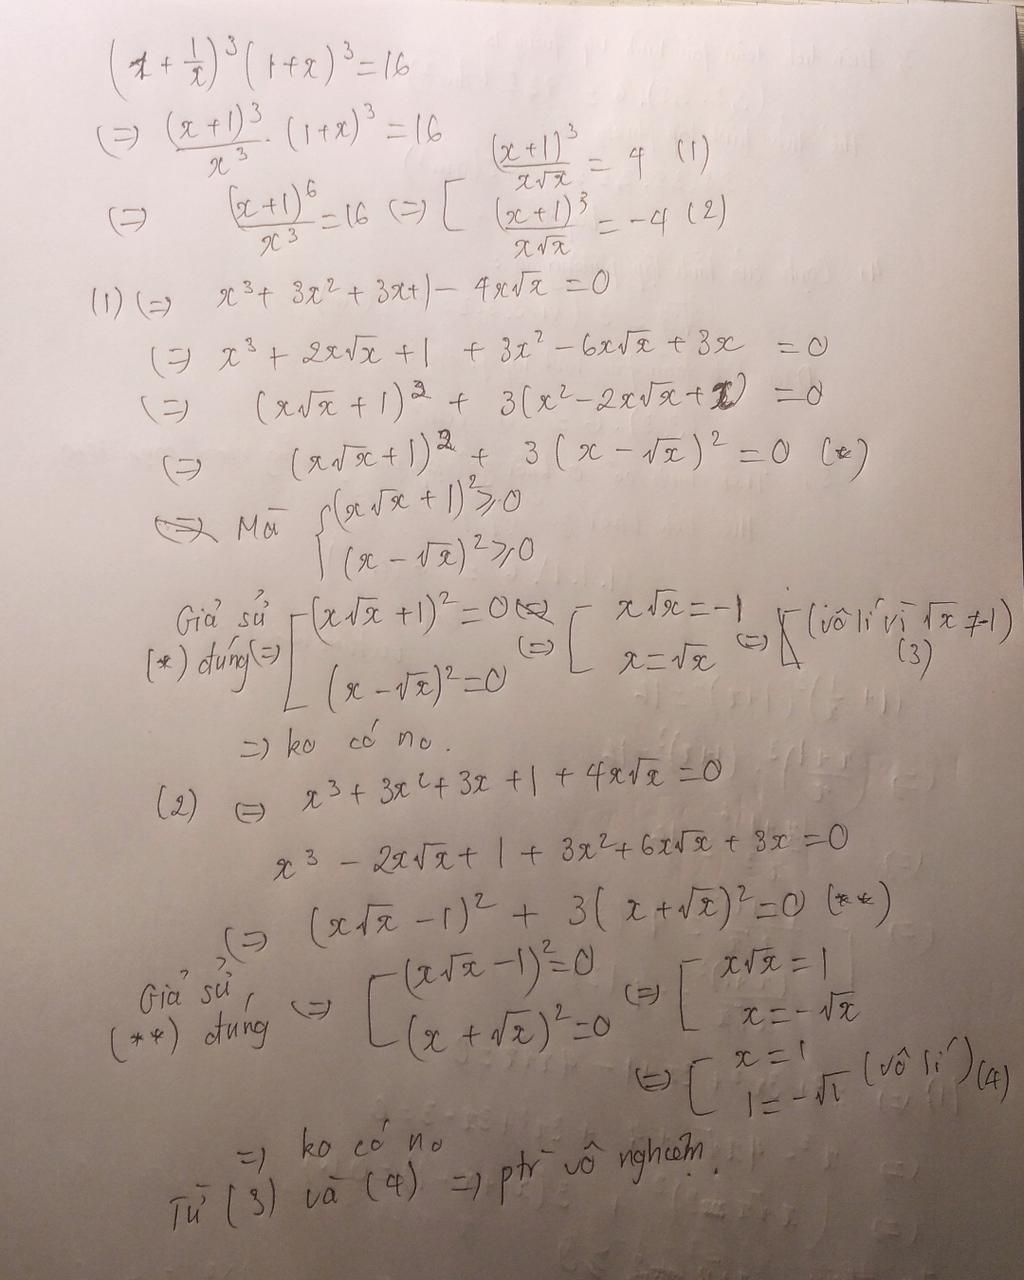 (1 + 1/x)³ (1+x)³ = 16
(=) (x+1)³/x³ . (1+x)³ = 16
(=) (x+1)⁶/x³ = 16 (=) [ (x+1)³/x√x = 4 (1)
(x+1)³/x√x = -4 (2)
(1) (=) x³ + 3x² + 3x+1 - 4x√x = 0
(=) x³ + 2x√x + 1 + 3x² - 6x√x + 3x = 0
(=) (x√x + 1)² + 3(x² - 2x√x + x) = 0
(=) (x√x + 1)² + 3(x - √x)² = 0 (*)
Mà { (x√x + 1)² ⩾ 0
(x - √x)² ⩾ 0
Giả sử
(*) đúng (=) [ (x√x + 1)² = 0
(x - √x)² = 0
(=) [ x√x = -1
x = √x
(=) (vô lí vì √x ≠ -1)
(3)
=) ko có no.
(2) (=) x³ + 3x² + 3x + 1 + 4x√x = 0
x³ - 2x√x + 1 + 3x² + 6x√x + 3x = 0
(=) (x√x - 1)² + 3(x + √x)² = 0 (**)
Giả sử,
(**) đúng (=) [ (x√x - 1)² = 0
(x + √x)² = 0
(=) [ x√x = 1
x = -√x
(=) [ x = 1
1 = -√1 (vô lí) (4)
=) ko có no
Từ (3) và (4) =) ptr vô nghiệm.